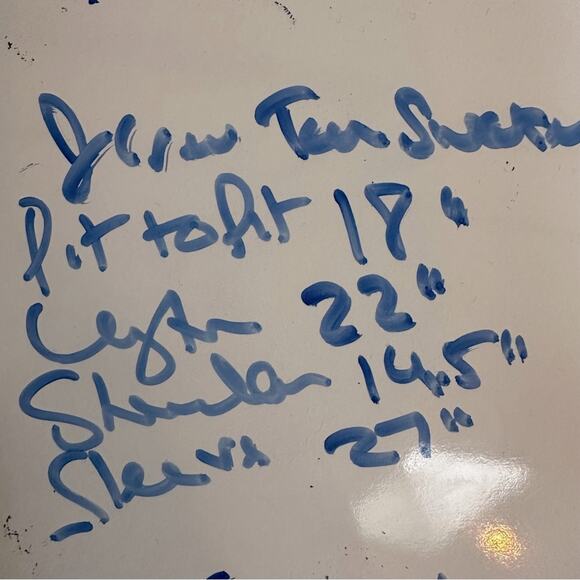 Tan Sweater
Pit to Pit 18"
Length 22"
Shoulder 14.5"
Sleeve 27"